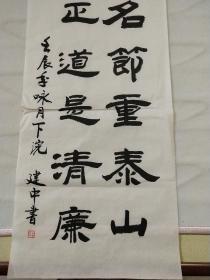 名節重泰山
正道是清廉
壬辰咏月下浣
建中書